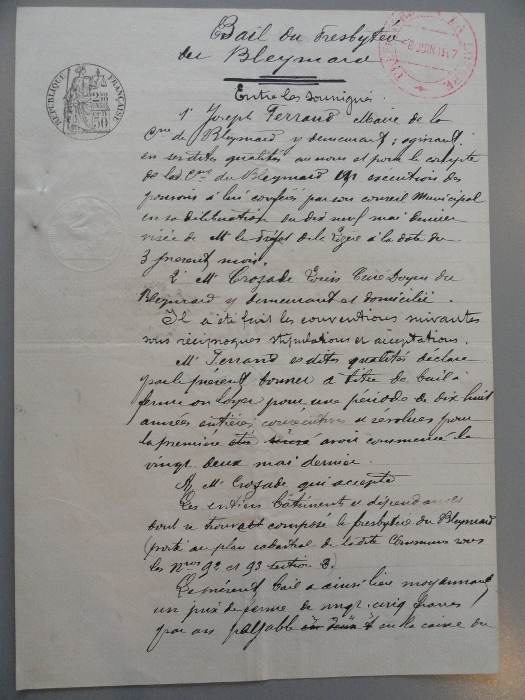 Bail du Presbytère
du Bleymard
Entre les soussignés
1° Joseph Ferrand Maire de la
Cne de Bleymard y demeurant, agissant
en ses dites qualités au nom et pour le compte
de la Cne du Bleymard en exécution des
pouvoirs à lui conférés par son conseil Municipal
en sa délibération du dix neuf mai dernier
visée de Mr le Préfet de la Lozère à la date du
3 présent mois.
2° Mr Crozade Louis Curé Doyen du
Bleymard y demeurant et domicilié.
Il a été fait les conventions suivantes
sous réciproques stipulations et acceptations.
Mr Ferrand es dites qualités déclare
par le présent donner à titre de bail à
ferme ou loyer pour une période de dix huit
années entières consécutives et révolues pour
la première avoir commencé le
vingt deux mai dernier.
A Mr Crozade qui accepte
Les entiers bâtiments et dépendances
dont se trouve composé le presbytère du Bleymard
(porté au plan cadastral de la dite Commune sous
les Nros 92 et 93 section B.)
Le présent bail a ainsi lieu moyennant
un prix de ferme de vingt cinq francs
par an payable en la caisse du
RÉPUBLIQUE FRANÇAISE
JUIN